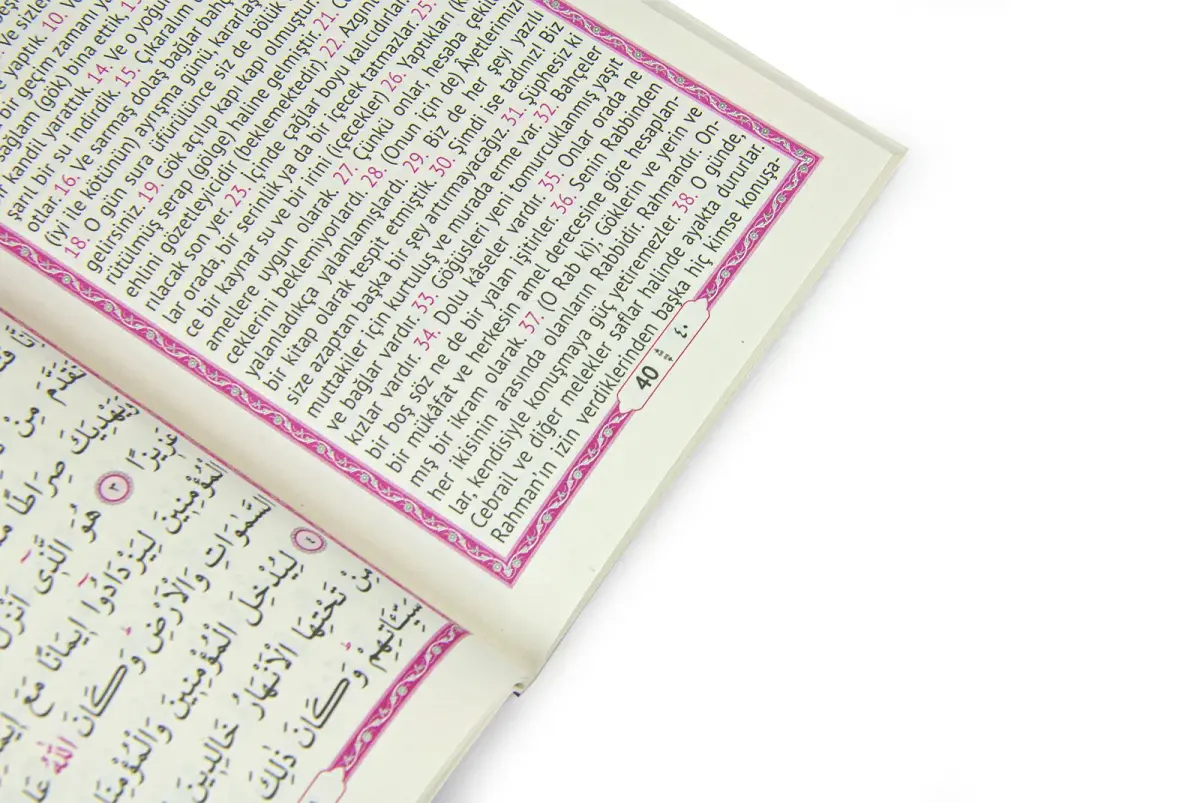 yaptık. 10.
bir geçim zaman
(gök) bina ettik.
kandil yarattık. 14. Ve o yoğun
şarıl bir su indirdik. 15. Çıkaralım
otlar. 16. Ve sarmaş dolaş bağlar
(iyi ile kötünün) ayrışma günü,
18. O gün sura üfürülünce siz de bölük
gelirsiniz. 19. Gök açılıp kapı kapı olmuştur.
rütülmüş serap (gölge) haline gelmiştir. 21.
ehlini gözetleyicidir (beklemektedir) 22. Azgın
rılacak son yer. 23. İçinde çağlar boyu kalıcıdırlar
lar orada, bir serinlik ya da bir içecek tatmazlar. 25.
ce bir kaynar su ve bir irini (içecekler) 26. Yaptıkları
amellere uygun olarak. 27. Çünkü onlar hesaba çekil
ceklerini beklemiyorlardı. 28. (Onun için de) Âyetlerimizi
yalanladıkça yalanlamışlardı. 29. Biz de her şeyi yazılı
bir kitap olarak tespit etmiştik. 30. Şimdi ise tadınız! Biz
size azaptan başka bir şey artırmayacağız. 31. Şüphesiz k
muttakiler için kurtuluş ve murada erme var. 32. Bahçele
ve bağlar vardır. 33. Göğüsleri yeni tomurcuklanmış yaşıt
kızlar vardır. 34. Dolu kâseler vardır. 35. Onlar orada ne
bir boş söz ne de bir yalan işitirler. 36. Senin Rabbinden
bir mükâfat ve herkesin amel derecesine göre hesaplan-
mış bir ikram olarak. 37. (O Rab ki); Göklerin ve yerin ve
her ikisinin arasında olanların Rabbidir. Rahmandır. On-
lar, kendisiyle konuşmaya güç yetiremezler. 38. O günde,
Cebrail ve diğer melekler saflar halinde ayakta dururlar.
Rahman'ın izin verdiklerinden başka hiç kimse konuşa-
40 ٤٠
وَيَهْدِيَكَ صِرَاطًا
عَزِيزًا ٣ هُوَ الَّذِى اَنْزَلَ
الْمُؤْمِنِينَ لِيَزْدَادُوا اِيمَانًا مَعَ
السَّمٰوَاتِ وَالْاَرْضِ وَكَانَ اللّٰهُ
٤ لِيُدْخِلَ الْمُؤْمِنِينَ
مِنْ تَحْتِهَا الْاَنْهَارُ خَالِدِينَ
سَيِّـَٔاتِهِمْ وَكَانَ ذٰلِكَ